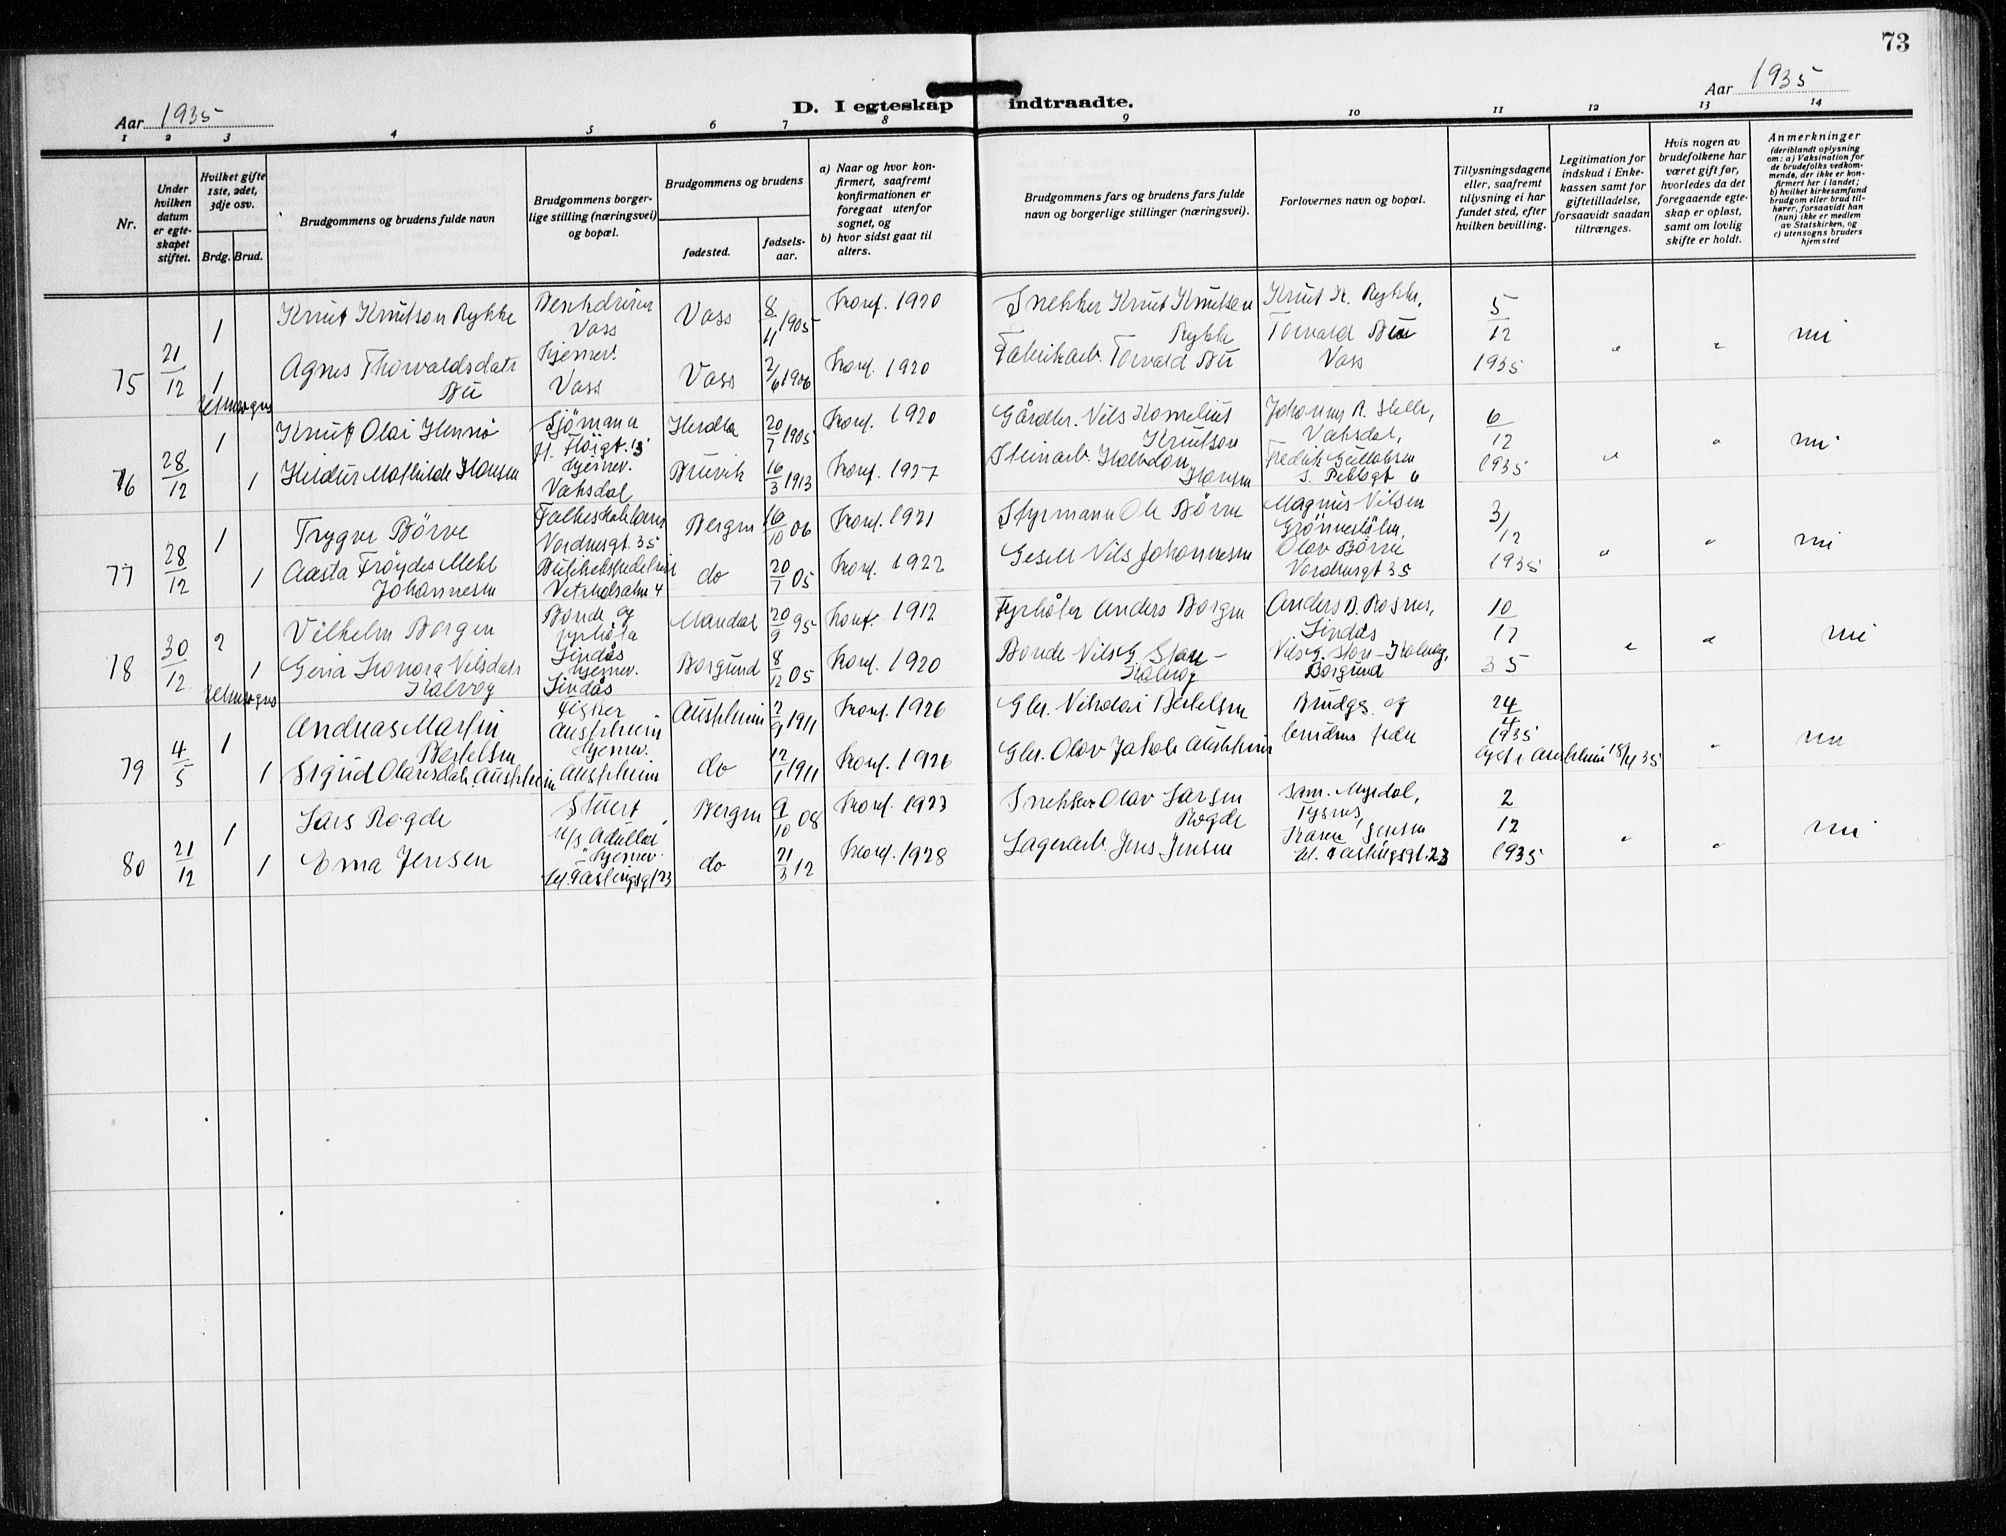 73
Aar 1935
D. I egteskap indtraadte.
Aar 1935
1 2 3 4 5 6 7 8 9 10 11 12 13 14
Nr.
Under hvilken datum er egteskapet stiftet.
Hvilket gifte 1ste, 2det, 3dje osv.
Brdg. Brud.
Brudgommens og brudens fulde navn
Brudgommens borgerlige stilling (næringsvei) og bopæl.
Brudgommens og brudens
fødested.
fødselsaar.
a) Naar og hvor konfirmert, saafremt konfirmationen er foregaat utenfor sognet, og
b) hvor sidst gaat til alters.
Brudgommens fars og brudens fars fulde navn og borgerlige stillinger (næringsvei).
Forlovernes navn og bopæl.
Tillysningsdagene eller, saafremt tillysning ei har fundet sted, efter hvilken bevilling.
Legitimation for indskud i Enkekassen samt for giftetilladelse, forsaavidt saadan tiltrænges.
Hvis nogen av brudefolkene har været gift før, hvorledes da det foregaaende egteskap er opløst, samt om lovlig skifte er holdt.
Anmerkninger
(deriblandt oplysning om: a) Vaksination for de brudefolks vedkommende, der ikke er konfirmert her i landet; b) hvilket kirkesamfund brudgom eller brud tilhører, forsaavidt han (hun) ikke er medlem av Statskirken, og c) utensogns bruders hjemsted
75 21/12 1 Knut Knutson Rykke Voss Voss 8/11 1905 Konf. 1920 Snekker Knut Knutsen Rykke Knut K. Rykke, Torvald Bu 5/12 1935 " " nei
1 Agnes Thorvaldsdatr Bu hjemev. Voss Voss 2/6 1906 Konf. 1920 Fabrikarb. Torvald Bu Voss
utensogns
76 28/12 1 Knut Olai Hennø Sjømann Herdla 20/7 1905 Konf. 1920 Gårdbr. Nils Kornelius Knutson Vaksdal, 6/12 1935 " " nei
1 Hildur Mathilde Hansen hjemev. Vaksdal Bruvik 16/3 1913 Konf. 1927 Hansen
77 28/12 1 Trygve Børve Nordnesgt. 35 Bergen 16/10 06 Konf. 1921 Styrmann Ole Børve Magnus Nilsen 3/12 1935 " " nei
1 Aasta Frøydes Mehl Johannesen do 20/7 05 Konf. 1922 Nils Johannesen Olav Børve Nordnesgt 35
78 30/12 2 Vilhelm Borgen Bonde og fyrbøter Lindås Mandal 20/9 95 Konf. 1912 Fyrbøter Anders Borgen Anders B. Lindås 10/12 35 " " nei
1 Nilsdatr Kalvåg hjemev. Lindås Borgund 8/12 05 Konf. 1920 Bonde Nils Kalvåg Borgund
utensogns
79 4/5 1 Andreas Martin Bertelsen Fisker Austrheim Austrheim 2/9 1911 Konf. 1926 Gbr. Nikolai Bertelsen Brudg. og brudens feder 24/4 1935 " nei
1 Sigrid Olavsdatr. Austrheim hjemev. Austrheim do 12/1 1911 Konf. 1926 Gbr. Olav Jakob Austrheim Lyst i Austrheim 18/4 35
80 21/12 1 Lars Rogde Stuert Bergen 9/10 08 Konf. 1923 Snekker Olav Larsen Rogde Sam. Myrdal, Tysnes, 2/12 1935 " " nei
1 Erna Jensen hjemev. do 21/3 12 Konf. 1928 Lagerarb. Jens Jensen Karen Jensen